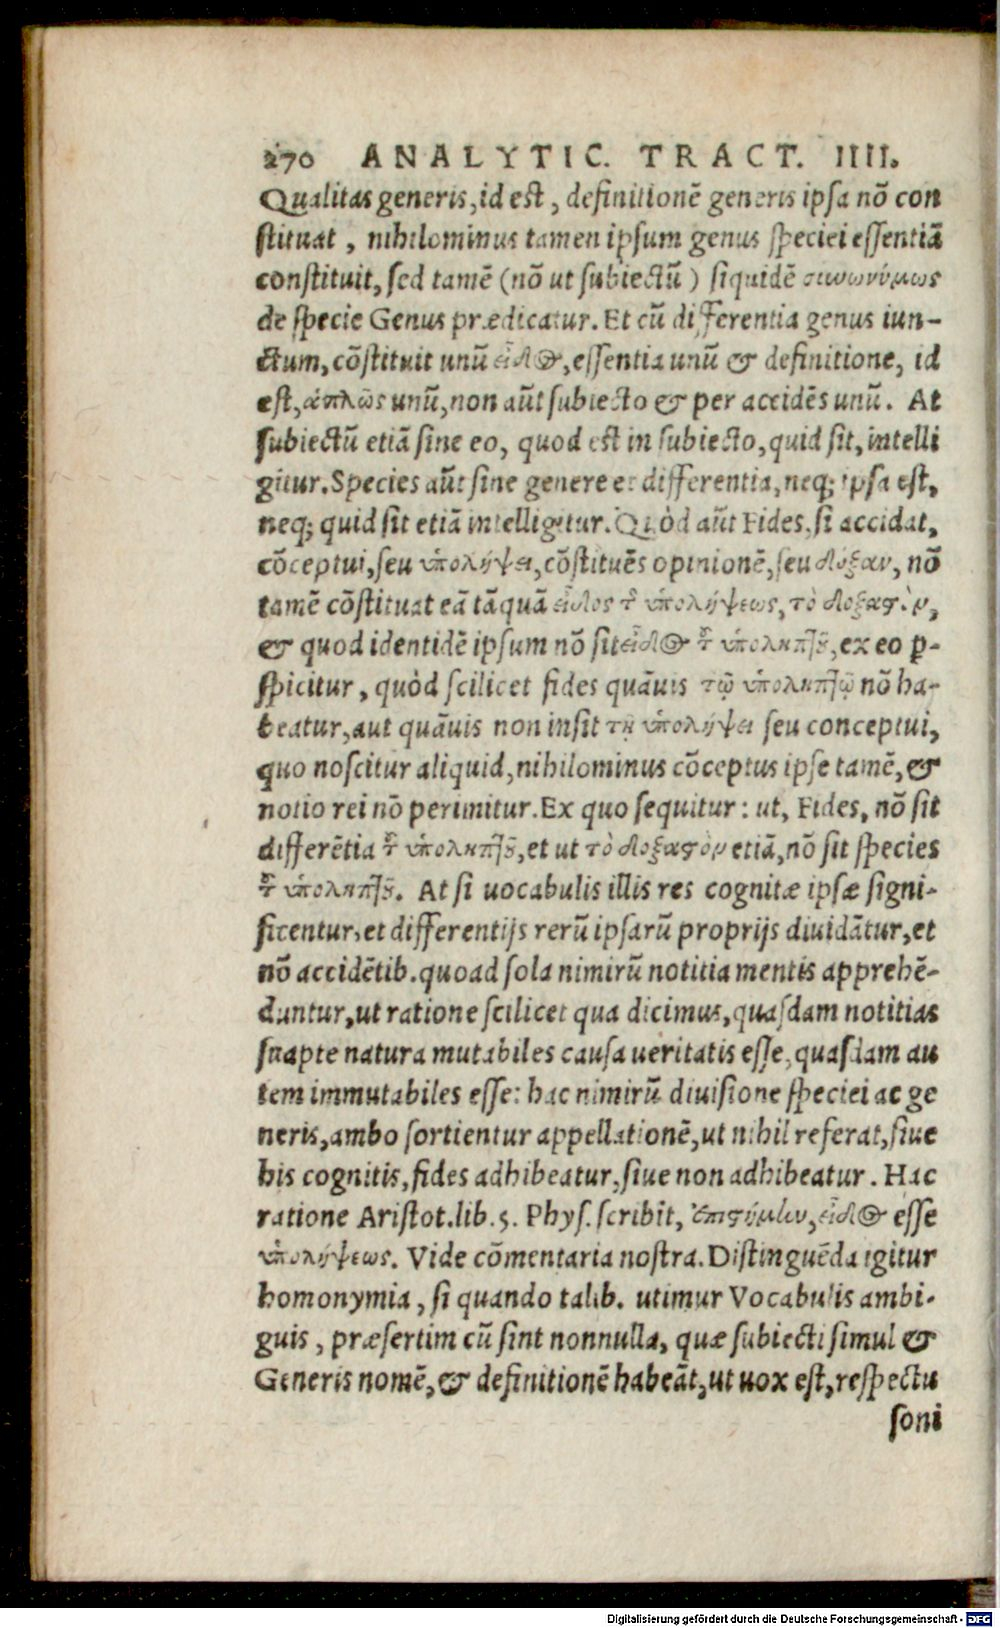 270 ANALYTIC. TRACT. IIII.
Qualitas generis, id est, definitionē generis ipsa nō con
stituat, nihilominus tamen ipsum genus speciei essentiā
constituit, sed tamē (nō ut subiectū) siquidē συνωνύμως
de specie Genus prædicatur. Et cū differentia genus iun-
ctum, cōstituit unū εἶδος, essentia unū & definitione, id
est, ἁπλῶς unū, non aūt subiecto & per accidēs unū. At
subiectū etiā sine eo, quod est in subiecto, quid sit, intelli
gitur. Species aūt sine genere et differentia, neq; ipsa est,
neq; quid sit etiā intelligitur. Quòd aūt Fides, si accidat,
cōceptui, seu ὑπολήψει, cōstituēs opinionē, seu δόξαν, nō
tamē cōstituat eā tāquā εἶδος τῆς ὑπολήψεως, τὸ δοξαστὸν,
& quod identidē ipsum nō sit εἶδος τοῦ ὑποληπτοῦ, ex eo ꝑ-
spicitur, quòd scilicet fides quāuis τῷ ὑποληπτῷ nō ha-
beatur, aut quāuis non insit τῇ ὑπολήψει seu conceptui,
quo noscitur aliquid, nihilominus cōceptus ipse tamē, &
notio rei nō perimitur. Ex quo sequitur: ut, Fides, nō sit
differētia τοῦ ὑποληπτοῦ, et ut τὸ δοξαστὸν etiā, nō sit species
τοῦ ὑποληπτοῦ. At si uocabulis illis res cognitæ ipsæ signi-
ficentur, et differentijs rerū ipsarū proprijs diuidātur, et
nō accidētib. quoad sola nimirū notitia mentis apprehē-
duntur, ut ratione scilicet qua dicimus, quasdam notitias
suapte natura mutabiles causa ueritatis esse, quasdam au
tem immutabiles esse: hac nimirū diuisione speciei ac ge
neris, ambo sortientur appellationē, ut nihil referat, siue
his cognitis, fides adhibeatur, siue non adhibeatur. Hac
ratione Aristot. lib. 5. Phys. scribit, ἐπιστήμην, εἶδος esse
ὑπολήψεως. Vide cōmentaria nostra. Distinguēda igitur
homonymia, si quando talib. utimur Vocabulis ambi-
guis, præsertim cū sint nonnulla, quæ subiecti simul &
Generis nomē, & definitionē habeāt, ut uox est, respectu
soni
Digitalisierung gefördert durch die Deutsche Forschungsgemeinschaft - DFG